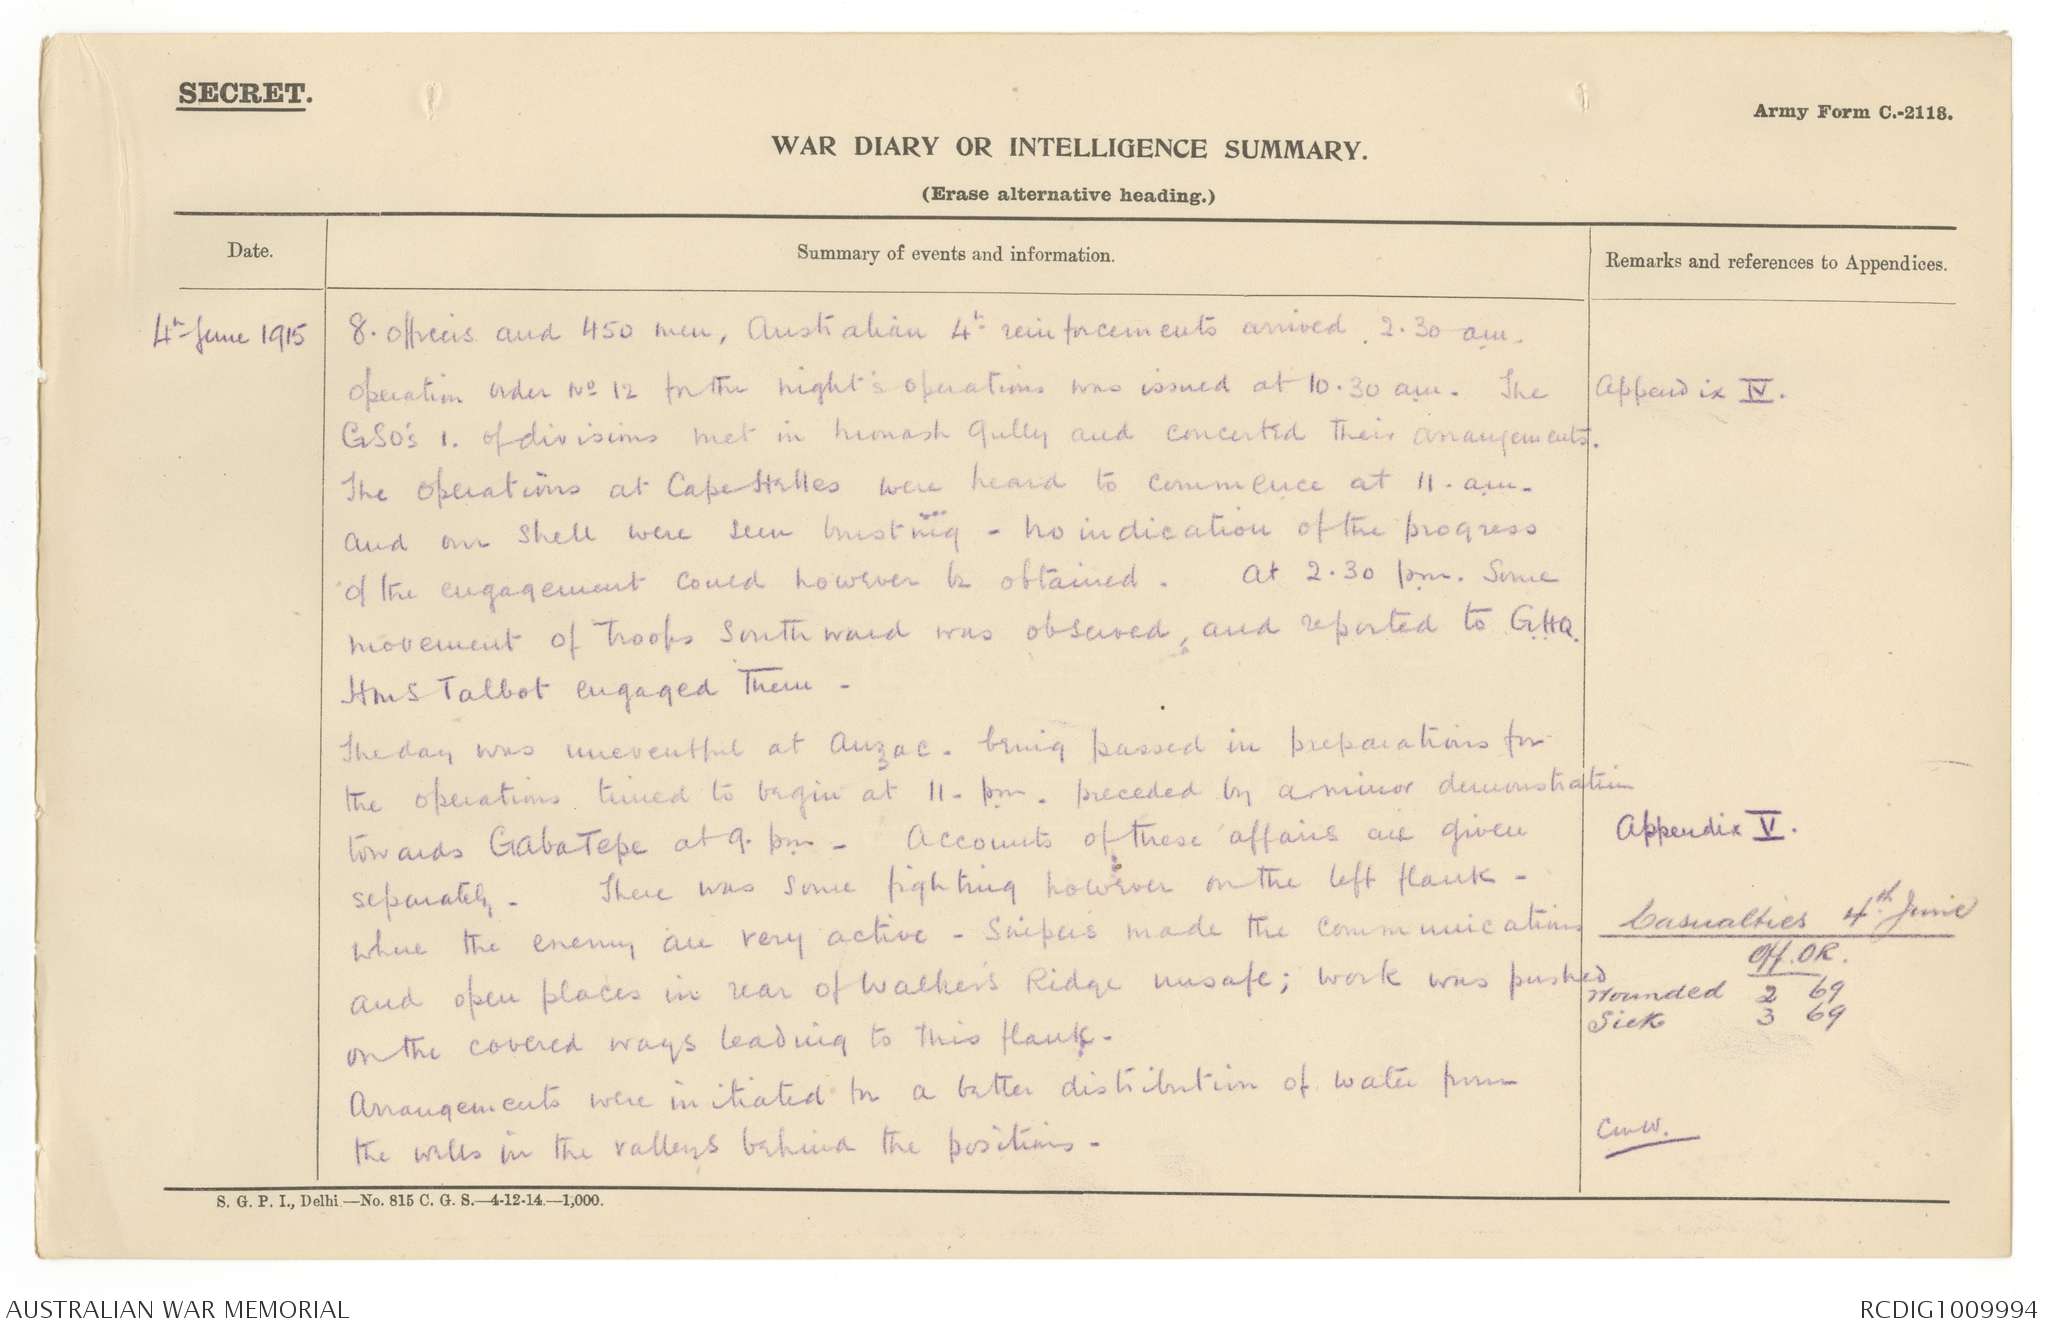 SECRET.
Army Form C.-2118.
WAR DIARY OR INTELLIGENCE SUMMARY.
(Erase alternative heading.)
Date.
Summary of events and information.
Remarks and references to Appendices.
4th June 1915
8. officers and 450 men, Australian 4th reinforcements arrived 2.30 am.
Operation order No 12 for the night's operations was issued at 10.30 am. The
Appendix IV.
GSO's 1. of divisions met in Monash Gully and concerted their arrangements.
The operations at Cape Helles were heard to commence at 11. am.
and our shell were seen bursting - No indication of the progress
of the engagement could however be obtained. At 2.30 pm. Some
movement of troops Southward was observed, and reported to G.H.Q.
HMS Talbot engaged them -
The day was uneventful at Anzac. being passed in preparations for
the operations timed to begin at 11. pm. preceded by a minor demonstration
towards GabaTepe at 9. pm - Accounts of these affairs are given
Appendix V.
separately - There was some fighting however on the left flank -
where the enemy are very active - Snipers made the communications
and open places in rear of Walker's Ridge unsafe; work was pushed
on the covered ways leading to this flank.
Arrangements were initiated for a better distribution of water from
the wells in the valleys behind the positions -
Casualties 4th June
Off. OR.
Wounded 2 69
Sick 3 69
CWW.
S. G. P. I., Delhi—No. 815 C. G. S.—4-12-14—1,000.
AUSTRALIAN WAR MEMORIAL
RCDIG1009994